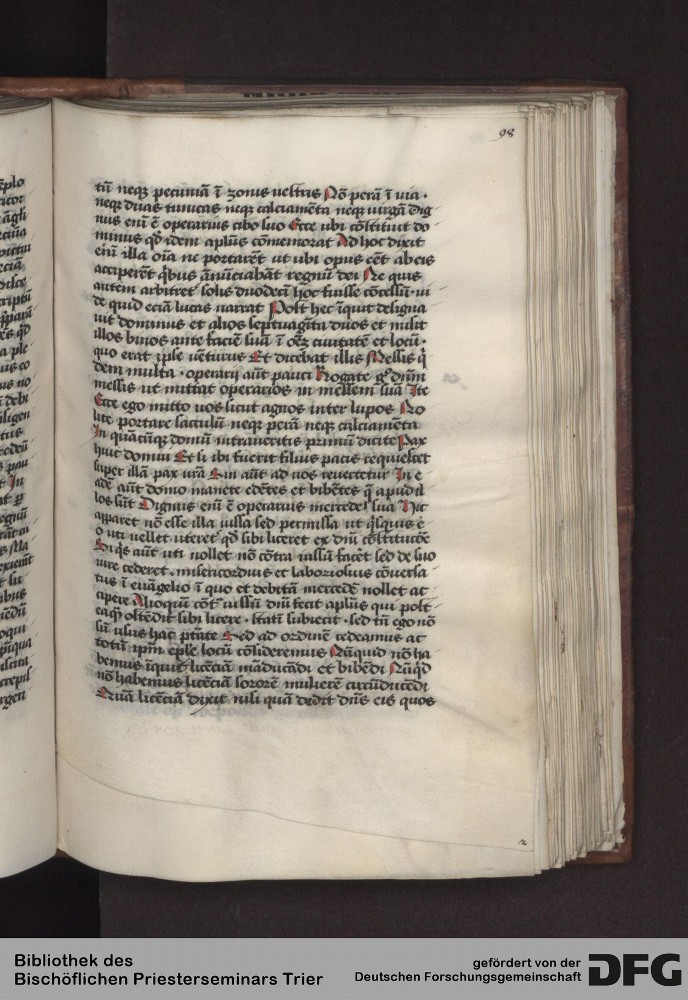 98
tū neqȝ pecuniā ī zonis uestris Nō perā ī uia ·
neqȝ duas tunicas neqȝ calciamēta neqȝ uirgā Dig
nus eni ē operarius cibo suo Ecce ubi cōstituit do
minus qd̄ idem aplūs cōmemorat Ad hoc dixit
eni illa oīa ne portarēt ut ubi opus eēt ab eis
acciperēt qͥbus ānūciabāt regnū dei Ne quis
autem arbitret solis duodecī hoc fuisse cōcessū · ui
de quid eciā lucas narrat Post hec īquit designa
uit dominus et alios septuagīta duos et misit
illos binos ante faciē suā ī oēȝ ciuitatē et locū ·
quo erat ipse uēturus Et dicebat illis Messis qͥ
dem multa · operarij aūt pauci Rogate gͦ dn̄m
messis ut mittat operarios in messem suā Ite
Ecce ego mitto uos sicut agnos inter lupos No
lite portare sacculū neqȝ perā neqȝ calciamēta
In quācūqȝ domū intraueritis primū dicite Pax
huic domui Et si ibi fuerit filius pacis requiescet
super illā pax vr̄a Sin aūt ad uos reuertetur In e
adē aūt domo manete edētes et bibētes q̄ apud il
los sūt Dignus eni ē operarius mercede sua Hic
apparet nō esse illa iussa sed permissa ut qͥsquis e
o uti uellet uteret qd̄ sibi liceret ex dn̄i cōstitucōe
Si qͥs aūt uti nollet nō cōtra iussū facēt sed de suo
iure cederet · misericordius et laboriosius cōuersa
tus ī euāgelio ī quo et debitā mercedē nollet ac
cipere Alioquī cōt̄ iussū dn̄i fecit aplūs qui post
eaqͣ ostēdit sibi licere · statī subiecit · sed tn̄ ego nō
sū usus hac ptāte Sed ad ordinē redeamus ac
totū ipm̄ epl̄e locū cōsideremus Nūquid nō ha
bemus īquit licēciā māducādi et bibēdi Nūqͥd
nō habemus licēciā sororē mulierē circūducēdi
Quā licēciā dixit nisi quā dedit dn̄s eis quos
Bibliothek des
Bischöflichen Priesterseminars Trier
gefördert von der
Deutschen Forschungsgemeinschaft
DFG